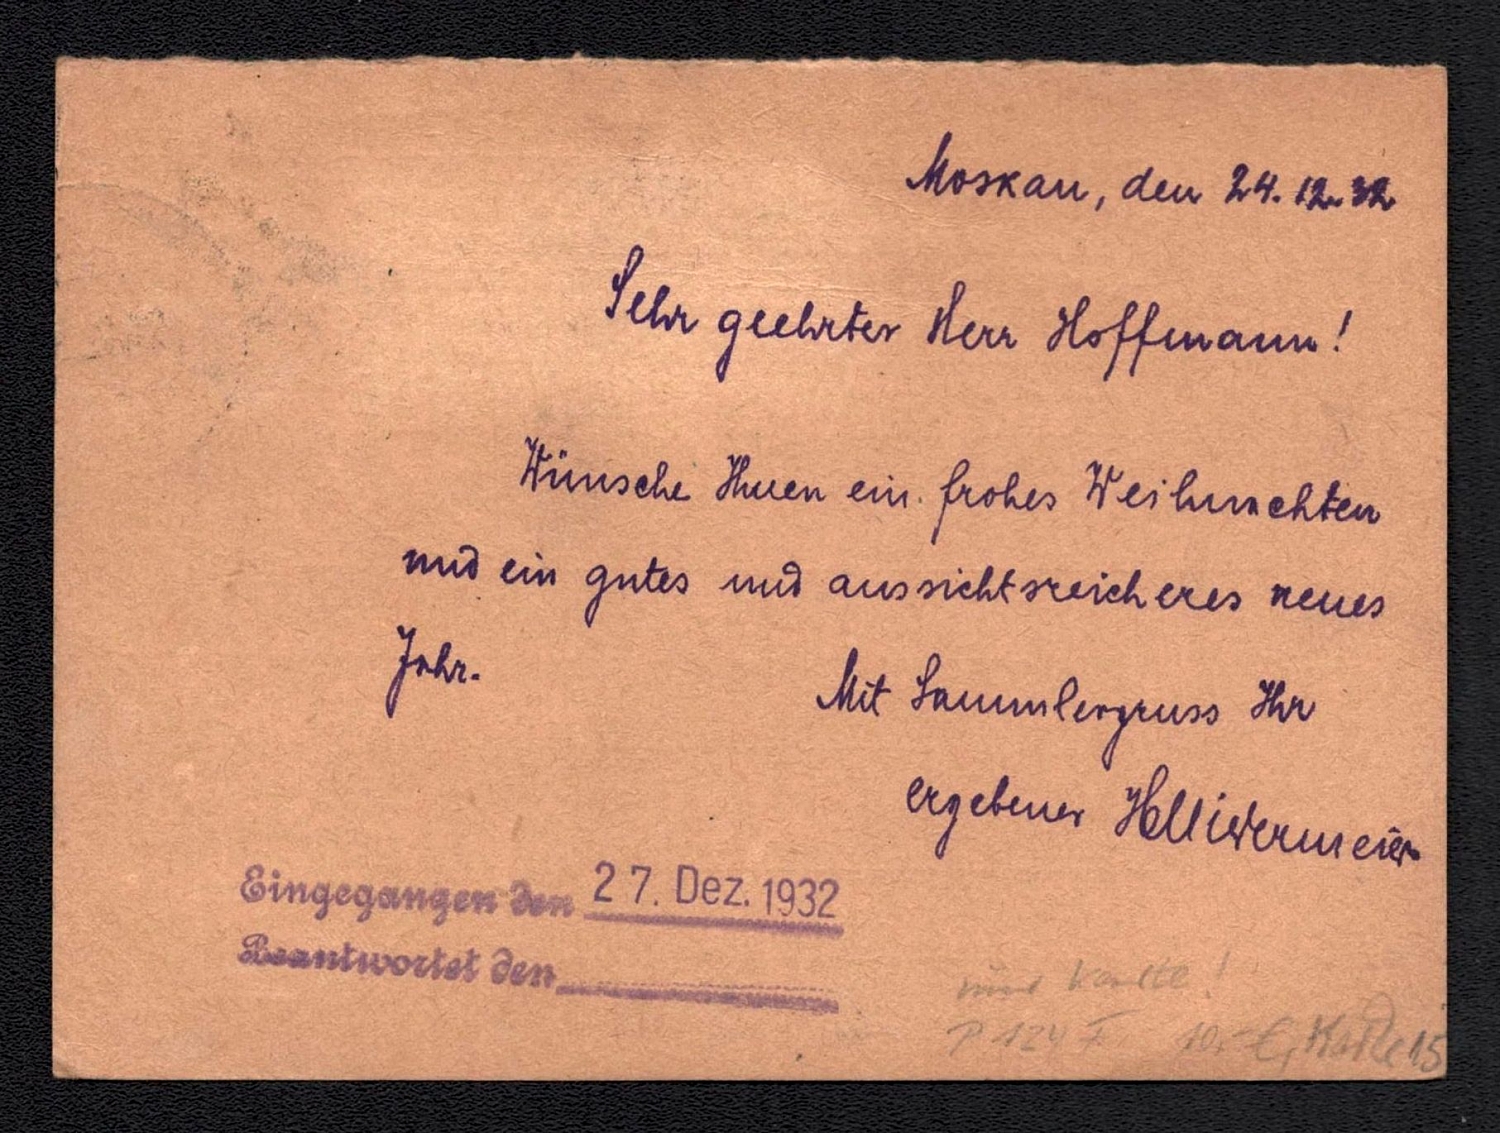 Moskau, den 24.12.32
Sehr geehrter Herr Hoffmann!
Wünsche Ihnen ein frohes Weihnachten
und ein gutes und aussichtsreicheres neues
Jahr.
Mit Sammlergruss Ihr
ergebener
Eingegangen den 27. Dez. 1932
Beantwortet den
P 124 F 10.-